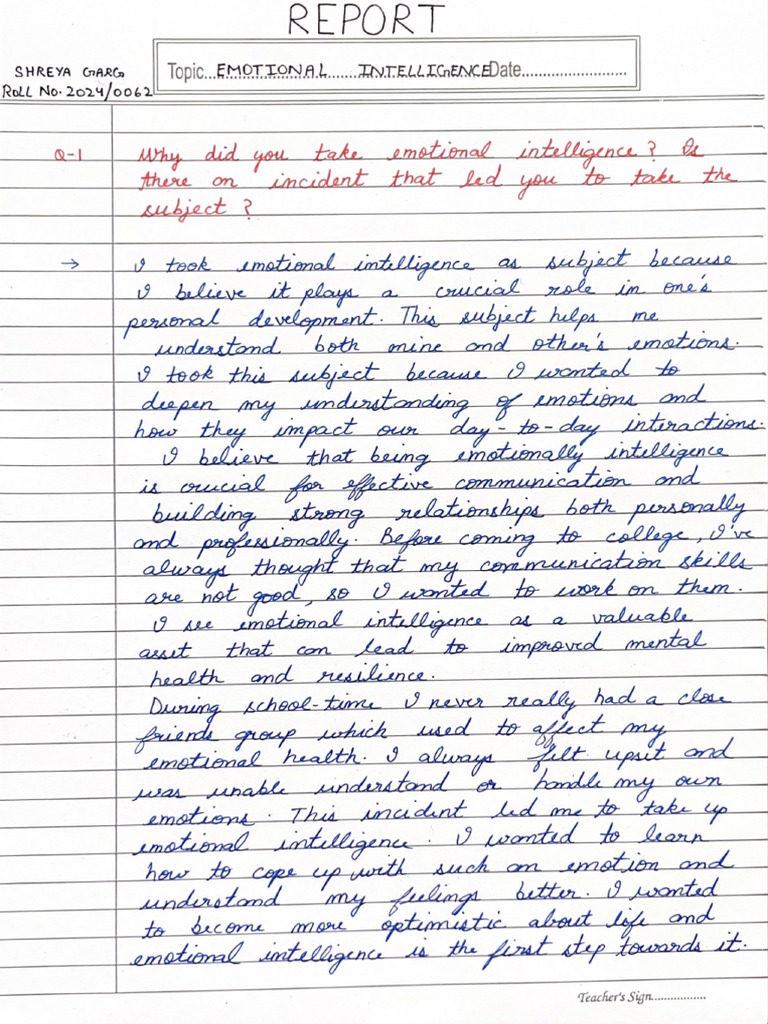 REPORT
SHREYA GARG
Roll No. 2024/0062
Topic...EMOTIONAL.......INTELLIGENCE Date..........................
Q-1 Why did you take emotional intelligence? Is
there an incident that led you to take the
subject?
→ I took emotional intelligence as subject because
I believe it plays a crucial role in one's
personal development. This subject helps me
understand both mine and other's emotions.
I took this subject because I wanted to
deepen my understanding of emotions and
how they impact our day-to-day interactions.
I believe that being emotionally intelligence
is crucial for effective communication and
building strong relationships both personally
and professionally. Before coming to college, I've
always thought that my communication skills
are not good, so I wanted to work on them.
I see emotional intelligence as a valuable
asset that can lead to improved mental
health and resilience.
During school-time I never really had a close
friends group which used to affect my
emotional health. I always felt upset and
was unable understand or handle my own
emotions. This incident led me to take up
emotional intelligence. I wanted to learn
how to cope up with such an emotion and
understand my feelings better. I wanted
to become more optimistic about life and
emotional intelligence is the first step towards it.
Teacher's Sign.................